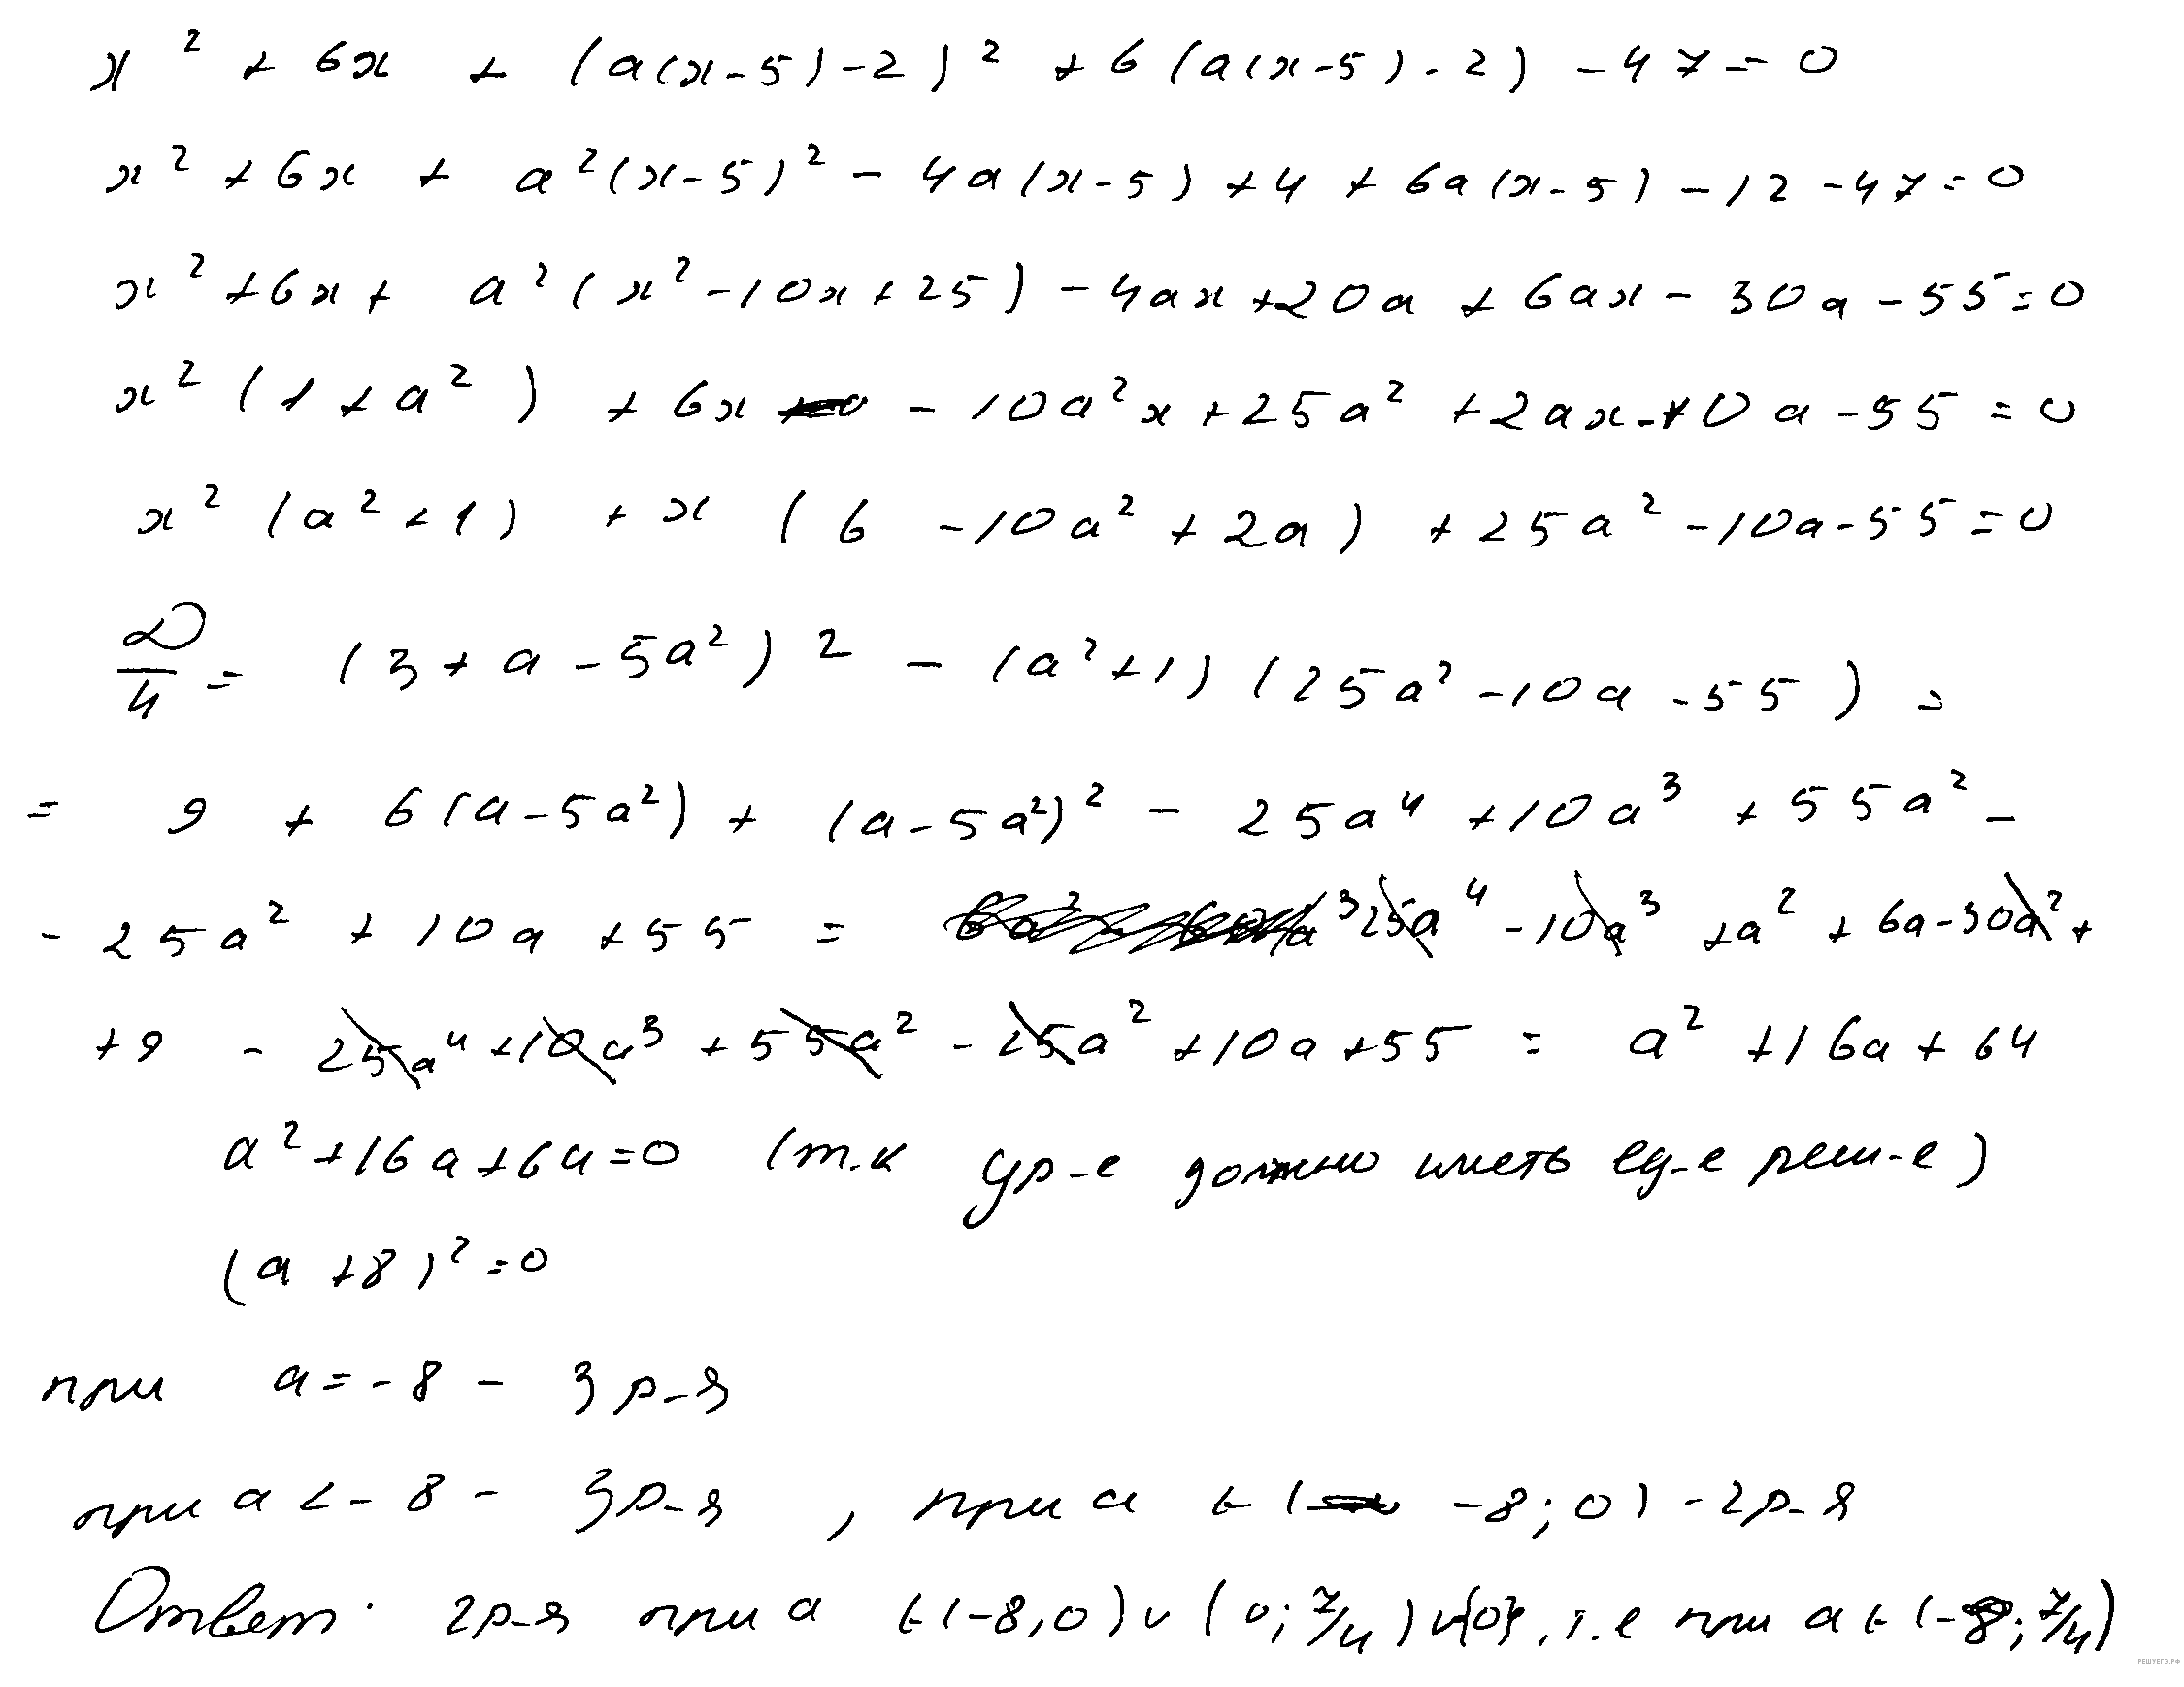 x² + 6x + (a(x-5)-2)² + 6(a(x-5)-2) - 47 = 0
x² + 6x + a²(x-5)² - 4a(x-5) + 4 + 6a(x-5) - 12 - 47 = 0
x² + 6x + a²(x² - 10x + 25) - 4ax + 20a + 6ax - 30a - 55 = 0
x²(1 + a²) + 6x - 10a²x + 25a² + 2ax - 10a - 55 = 0
x²(a² + 1) + x(6 - 10a² + 2a) + 25a² - 10a - 55 = 0
D/4 = (3 + a - 5a²)² - (a² + 1)(25a² - 10a - 55) =
= 9 + 6(a - 5a²) + (a - 5a²)² - 25a⁴ + 10a³ + 55a² -
- 25a² + 10a + 55 = 25a⁴ - 10a³ + a² + 6a - 30a² +
+ 9 - 25a⁴ + 10a³ + 55a² - 25a² + 10a + 55 = a² + 16a + 64
a² + 16a + 64 = 0 (т.к ур-е должно иметь ед-е реш-е)
(a + 8)² = 0
при a = -8 - 3 р-я
при a < -8 - 3р-я, при a ∈ (-8; 0) - 2р-я
Ответ: 2р-я при a ∈ (-8; 0) ∪ (0; 7/4) ∪ {0}, т.е при a ∈ (-8; 7/4)
РЕШУЕГЭ.РФ